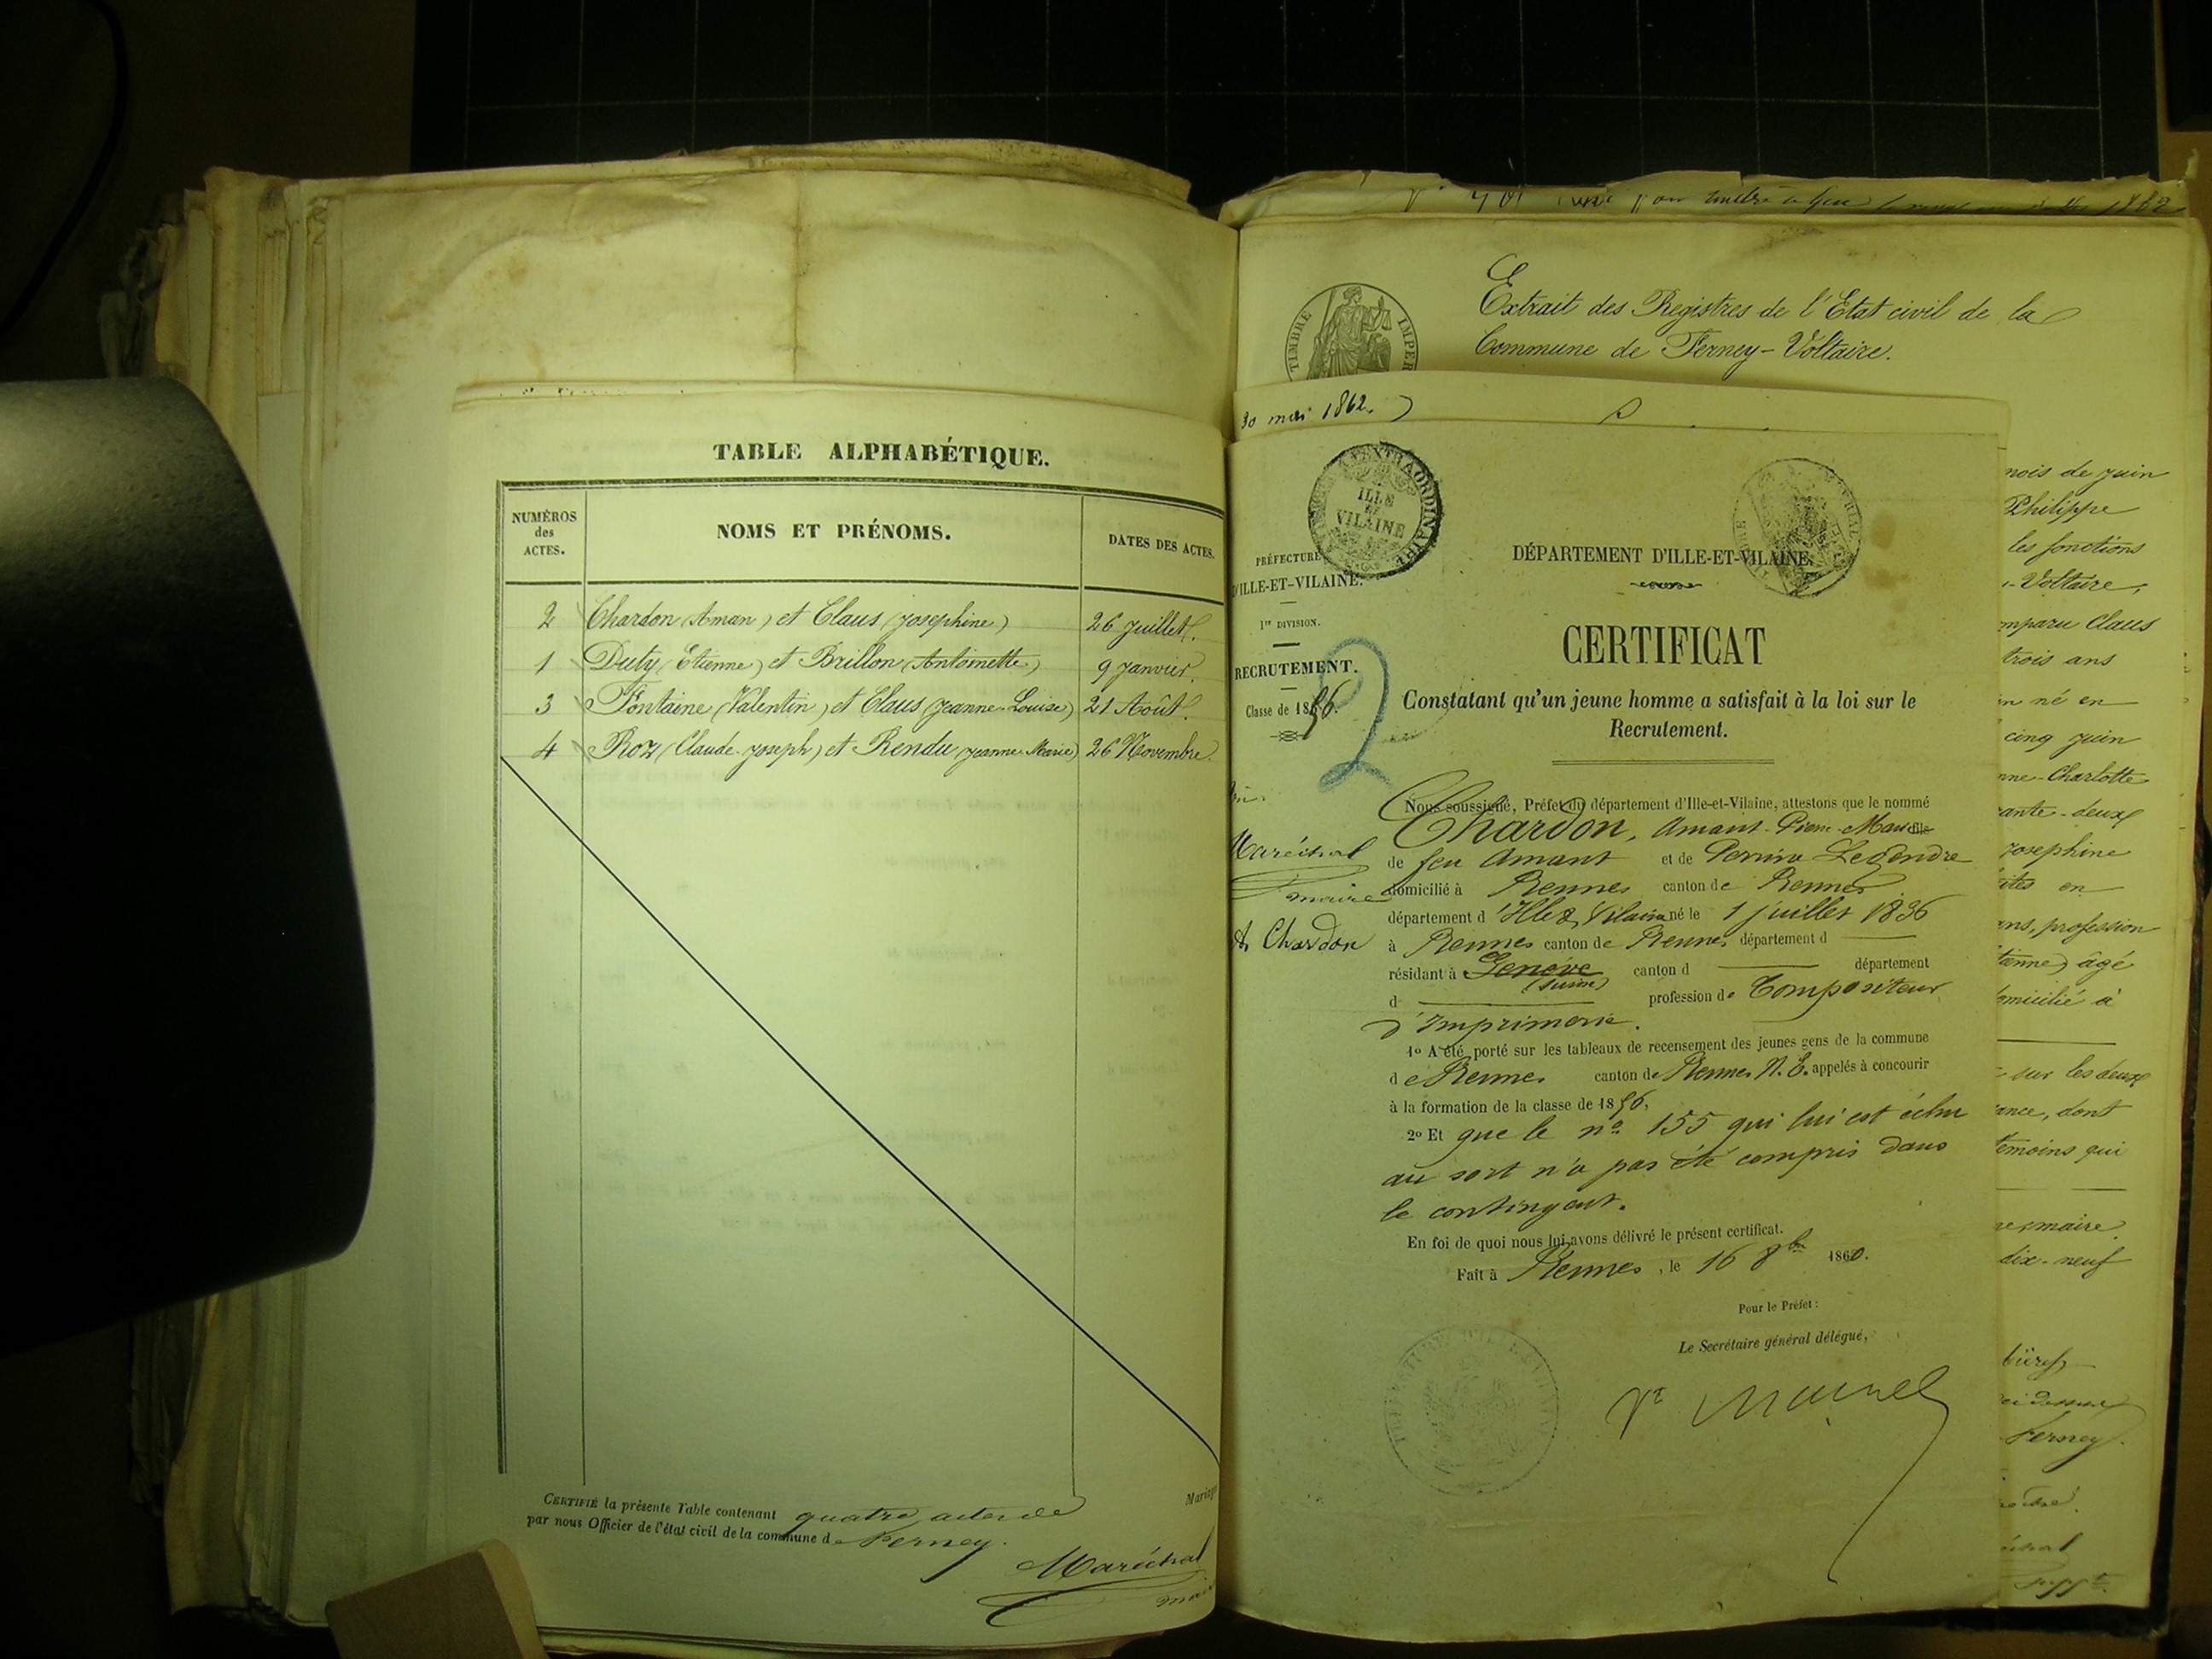 TABLE ALPHABÉTIQUE.
NUMÉROS des ACTES.
NOMS ET PRÉNOMS.
DATES DES ACTES.
2 Chardon (Aman) et Claus (Josephine) 26 Juillet.
1 Duty (Etienne) et Brillon (Antoinette) 9 Janvier.
3 Fontaine (Valentin) et Claus (Jeanne-Louise) 21 Août.
4 Roz (Claude-Joseph) et Rendu (Jeanne-Marie) 26 Novembre.
CERTIFIÉ la présente Table contenant quatre actes de Mariage
par nous Officier de l'état civil de la commune de Ferney.
Maréchal
Extrait des Registres de l'Etat civil de la
Commune de Ferney-Voltaire.
TIMBRE IMPER
30 mai 1862.
ILLE VILAINE
EXTRAORDINAIRE
PRÉFECTURE
D'ILLE-ET-VILAINE.
1re DIVISION.
RECRUTEMENT.
Classe de 1856.
2
Maréchal
maire
A Chardon
DÉPARTEMENT D'ILLE-ET-VILAINE.
CERTIFICAT
Constatant qu'un jeune homme a satisfait à la loi sur le
Recrutement.
Nous soussigné, Préfet du département d'Ille-et-Vilaine, attestons que le nommé
Chardon, Amant-Pierre-Marie fils
de feu Amant et de Perrine Legendre
domicilié à Rennes canton de Rennes
département d'Ille & Vilaine né le 1 juillet 1836
à Rennes canton de Rennes département d
résidant à Genève (Suisse) canton d département
d profession de Compositeur
d'Imprimerie.
1º A été porté sur les tableaux de recensement des jeunes gens de la commune
de Rennes canton de Rennes N. E. appelés à concourir
à la formation de la classe de 1856,
2º Et que le nº 155 qui lui est échu
au sort n'a pas été compris dans
le contingent.
En foi de quoi nous lui avons délivré le présent certificat.
Fait à Rennes, le 16 8bre 1860.
Pour le Préfet :
Le Secrétaire général délégué,
mois de juin
Philippe
les fonctions
-Voltaire,
comparu Claus
trois ans
né en
cinq juin
-Charlotte
-deux
Josephine
en
ans, profession
âgé
domicilié à
sur les deux
dont
témoins qui
maire
dix-neuf
Ferney